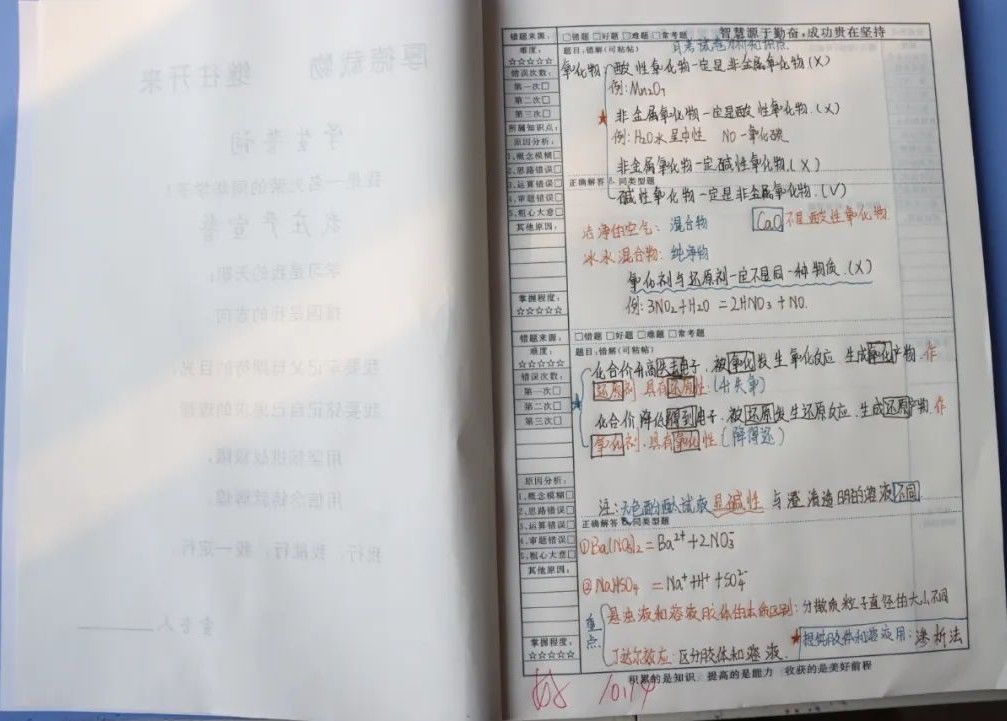 错题来源： □错题 □好题 □难题 □常考题 智慧源于勤奋，成功贵在坚持
难度： 题目：错解（可粘贴）
☆☆☆☆☆
错误次数：
第一次□
第二次□
第三次□
所属知识点：
原因分析：
1.概念模糊□
2.思路错误□
3.运算错误□
4.审题错误□
5.粗心大意□
其他原因：
掌握程度：
☆☆☆☆☆
氧化物 酸性氧化物一定是非金属氧化物(X)
例：Mn₂O₇
★ 非金属氧化物一定是酸性氧化物.(X)
例：H₂O水呈中性 NO一氧化
非金属氧化物一定碱性氧化物.(X)
正确解答&同类型题
碱性氧化物一定是非金属氧化物.(V)
洁净的空气：混合物 CaO不是酸性氧化物
冰水混合物：纯净物
氧化剂与还原剂一定不是同一种物质.(X)
例：3NO₂+H₂O=2HNO₃+NO.
错题来源： □错题 □好题 □难题 □常考题
难度： 题目：错解（可粘贴）
☆☆☆☆☆
错误次数：
第一次□
第二次□
第三次□
原因分析：
1.概念模糊□
2.思路错误□
3.运算错误□
4.审题错误□
5.粗心大意□
其他原因：
掌握程度：
☆☆☆☆☆
化合价升高失去电子，被氧化发生氧化反应 生成氧化产物.作
还原剂 具有还原性(升失氧)
★ 化合价降低得到电子，被还原发生还原反应.生成还原产物.作
氧化剂.具有氧化性(降得还)
注：无色酚酞试液显碱性 与澄清透明的溶液不同
正确解答&同类型题
①Ba(NO₃)₂=Ba²⁺+2NO₃⁻
②NaHSO₄=Na⁺+H⁺+SO₄²⁻
重点 悬浊液和溶液胶体的本质区别：分散质粒子直径的大小不同
丁达尔效应：区分胶体和溶液. ★提纯胶体和溶液用：渗析法
积累的是知识 提高的是能力 收获的是美好前程
10.14
厚德载物 继往开来
学生誓词
我是一名光荣的同航学子！
我庄严宣誓
学习是我的天职；
报国是我的志向。
用坚韧挑战极限，
我行，我能行，我一定行。
宣誓人